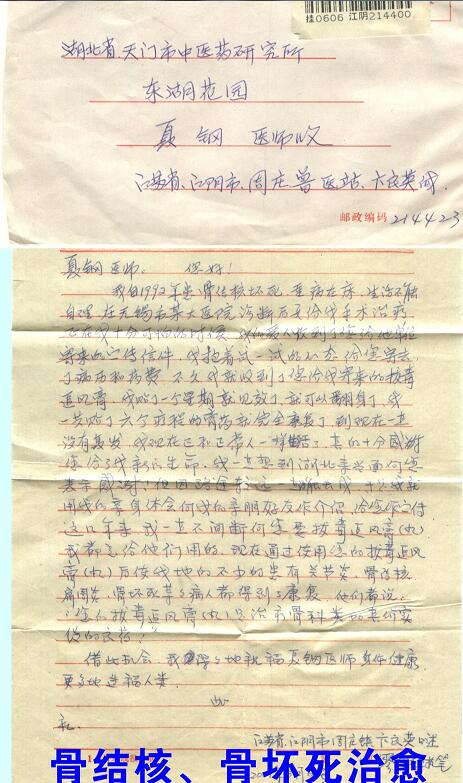 挂0606 江阴214400
湖北省天门市中医药研究所
东湖花园
夏钢 医师收
江苏省、江阴市、周庄兽医站、卞 英 
邮政编码 214423
夏钢医师: 你好!
我自1992年患骨结核坏死,重病在床,生活不能
自理,在无锡市某大医院诊断后 给我手术治病
正在我十分 的时候,我的爱人收到了您给他单位
寄来的宣传信件,我抱着试一试的心态给您寄去
了病历和药费,不久我就收到了您给我寄来的拔毒
追风膏,我贴了一个星期就见效了,就可以翻身了,我
一共贴了六个疗程的膏药就完全康复了,到现在一直
没有复发,我现在已和正常人一样 了,真的十分感谢
您给了我新的生命,我一直想到湖北来当面向您
表示感谢!但因路途 我
用我的亲身体会向我的亲朋好友作介绍,给您作宣传
这几年来,我一直不间断向您要拔毒追风膏(丸)
我都 给他们用的,现在通过使用您的拔毒追风
膏(丸)后使我地的不少的患有关节炎、骨结核
肩周炎、骨坏死等病人都得到了康复,他们都说:
"您的拔毒追风膏(丸)是治疗骨科类 真价实
货 !"
借此机会,我 地祝福夏钢医师身体健康
更多地造福人类。
此
礼
江苏省、江阴市周庄镇 卞 英
骨结核、骨坏死治愈